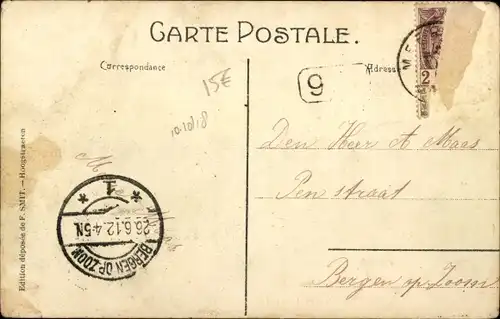 CARTE POSTALE.
Correspondance
Adresse
15€
10.10/18
6
M
2
Den Heer A Maas
Pen straat
Bergen op Zoom
1
26.6.12.4-5N
BERGEN OP ZOOM
Edition déposée de F. SMIT.—Hoogstraeten